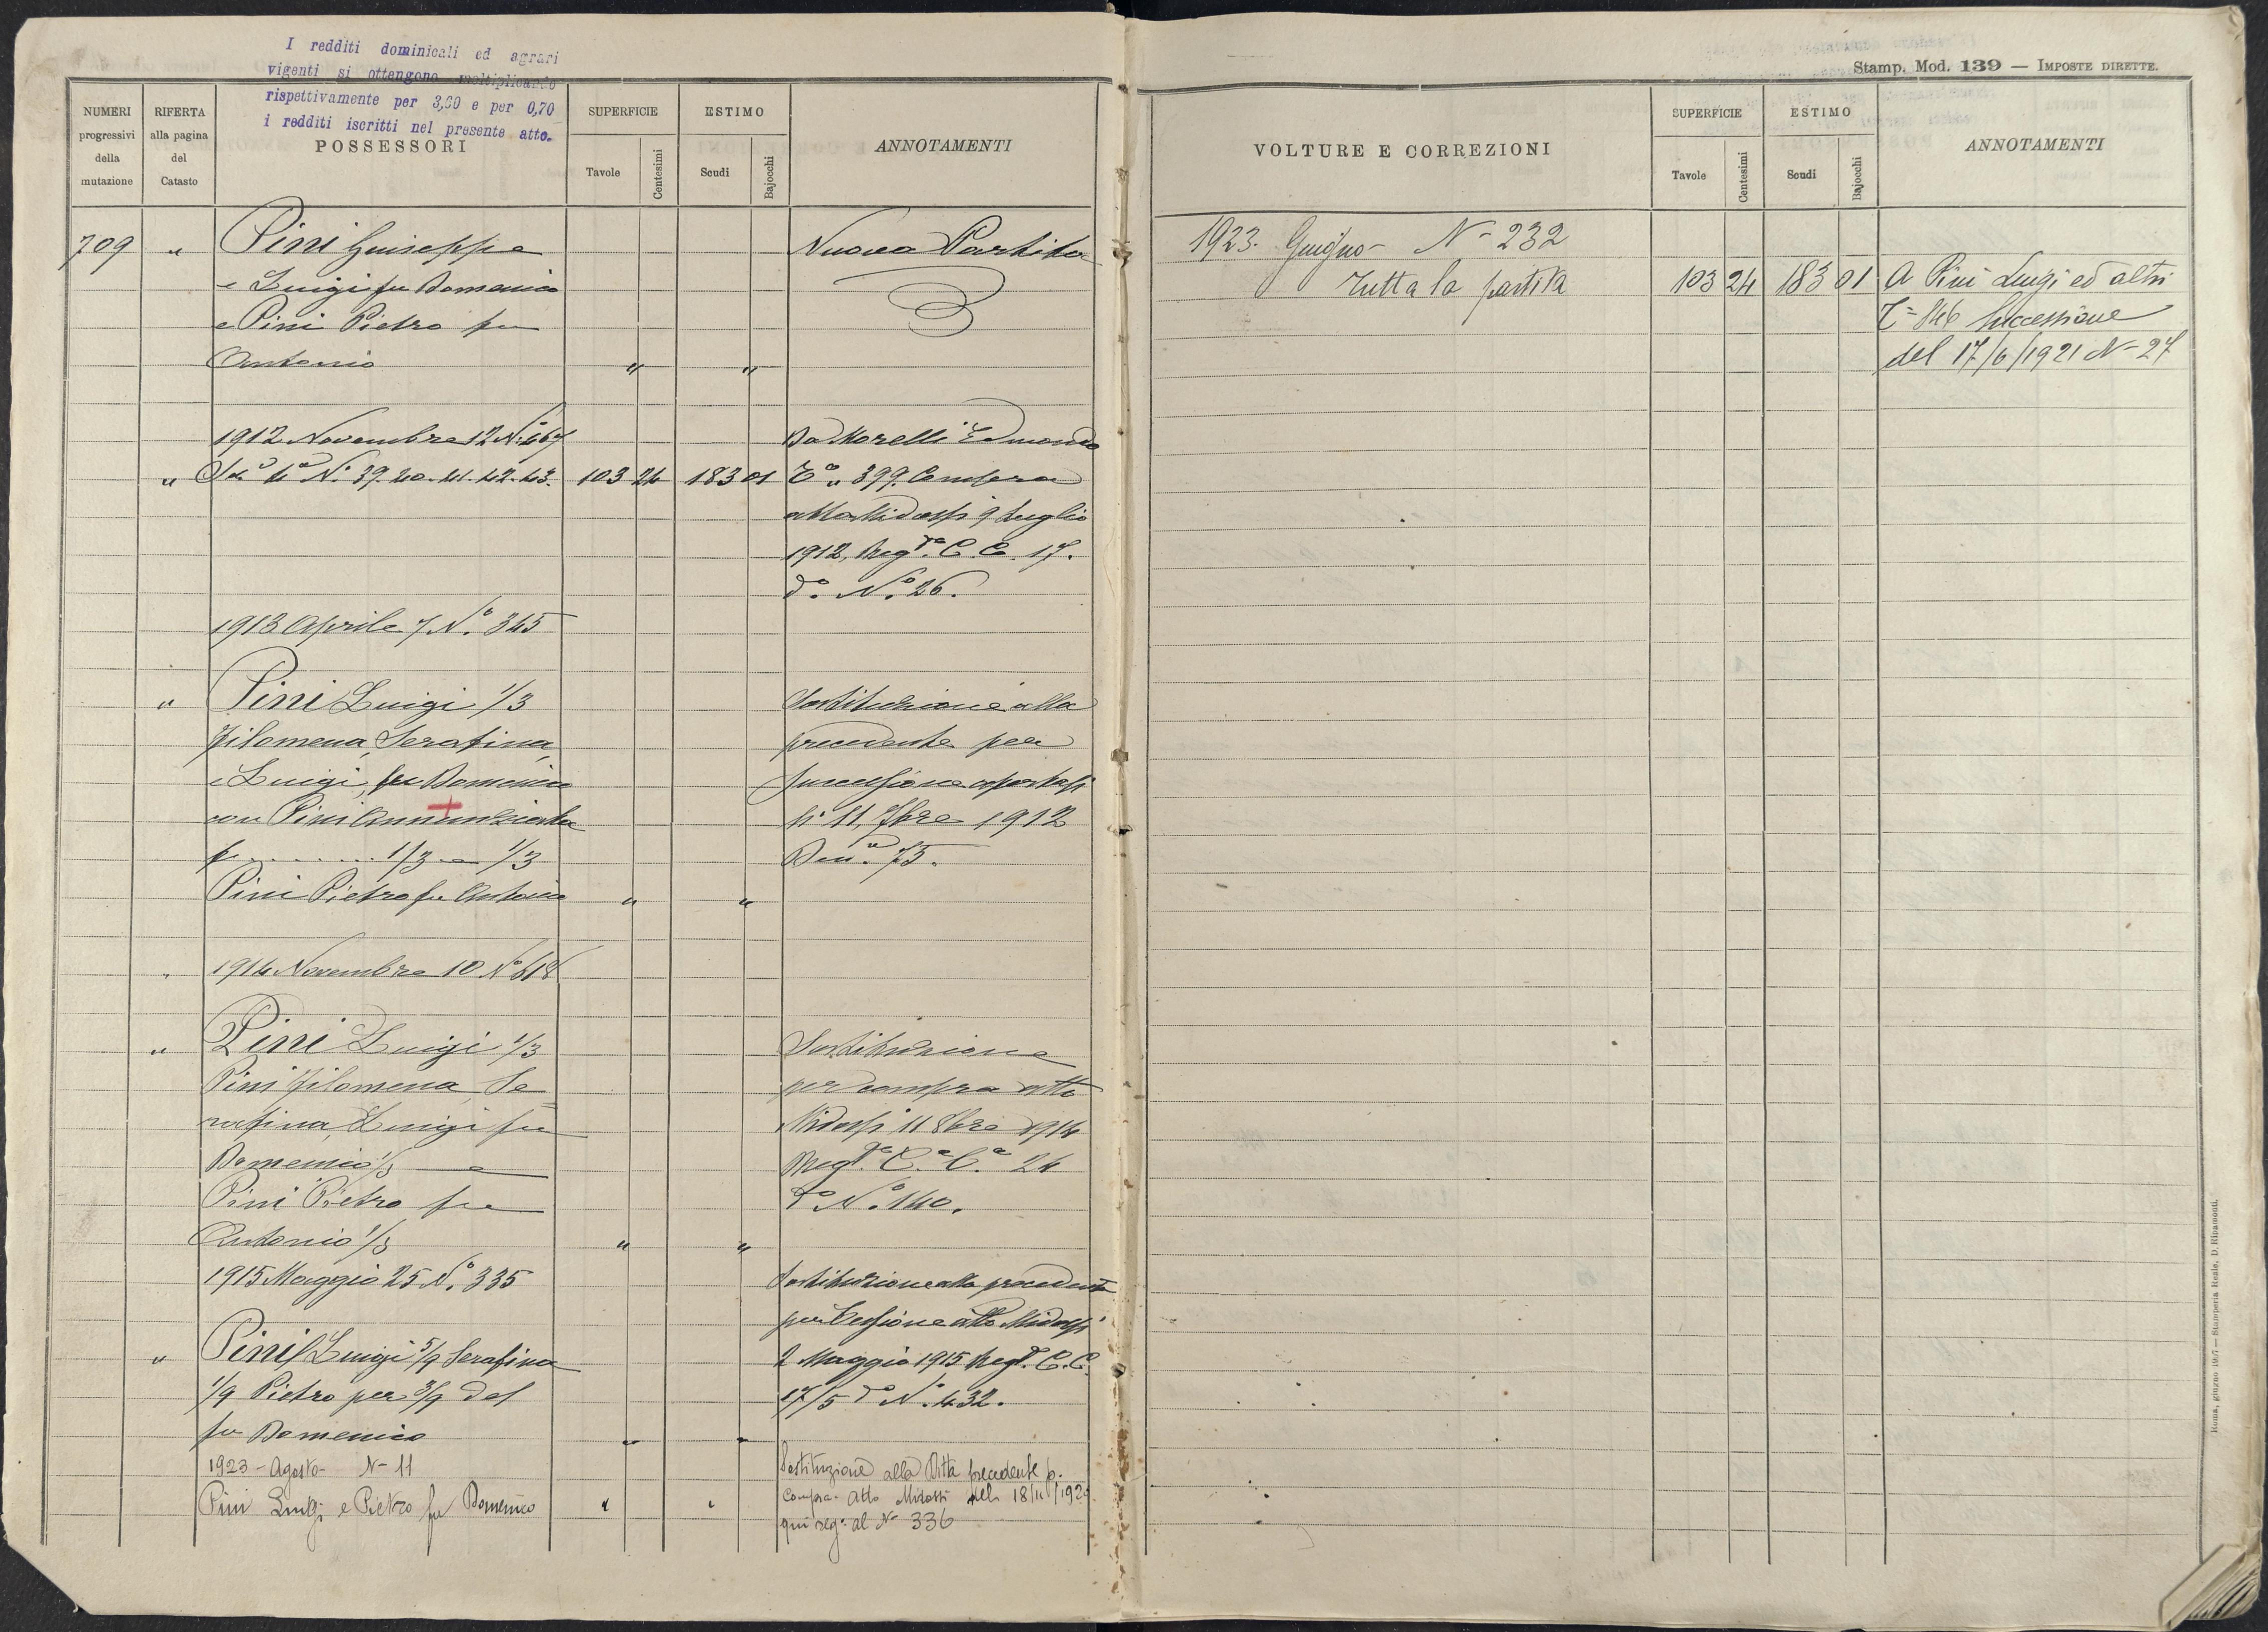 I redditi dominicali ed agrari
vigenti si ottengono moltiplicando
rispettivamente per 3,00 e per 0,70
i redditi iscritti nel presente atto.
NUMERI progressivi della mutazione
RIFERTA alla pagina del Catasto
POSSESSORI
SUPERFICIE
Tavole
Centesimi
ESTIMO
Scudi
Bajocchi
ANNOTAMENTI
709 " Pini Giuseppe Nuova Partita
e Luigi fu Domenico
e Pini Pietro fu
Antonio " "
1912 Novembre 12 N.° 467 Da Morelli Edmondo
" N.° 39. 40. 41. 42. 43. 103 24 183 01 T.° 399. Compra
atto Midossi 9 Luglio
1912, Reg.to C. C. 17.
d.° N.° 26.
1913 Aprile 7 N.° 345
" Pini Luigi 1/3 Sostituzione alla
Filomena, Serafina, precedente per
e Luigi, fu Domenico successione apertasi
con Pini Annunziata li 11, 7bre 1912
fu ......... 1/3 e 1/3 Den.a 75.
Pini Pietro fu Antonio " "
1914 Novembre 10 N.° 618
" Pini Luigi 1/3 Sostituzione
Pini Filomena, Se per compra atto
rafina, Luigi fu Midossi 11 8bre 1914
Domenico 1/3 e Reg.to C.a C.a 24
Pini Pietro fu d.° N.° 140.
Antonio 1/3 " "
1915 Maggio 25 N.° 335 Sostituzione alla precedente
per Cessione atto Midossi
" Pini Luigi 5/9 Serafina 2 Maggio 1915 Reg.to C. C.
1/9 Pietro per 3/9 del 17/5 d.° N.° 432.
fu Domenico " "
1923 - Agosto - N- 11 Sostituzione alla Ditta precedente p.
Pini Luigi e Pietro fu Domenico " " Compra - Atto Midossi del 18/11/192
qui reg. al N- 336
Stamp. Mod. 139 — IMPOSTE DIRETTE.
VOLTURE E CORREZIONI
SUPERFICIE
Tavole
Centesimi
ESTIMO
Scudi
Bajocchi
ANNOTAMENTI
1923. Giugno - N- 232
Tutta la partita 103 24 183 01 A Pini Luigi ed altri
T- 846 Successione
del 17/6/1921 N- 27
Roma, giugno 1907 — Stamperia Reale, D. Ripamonti.